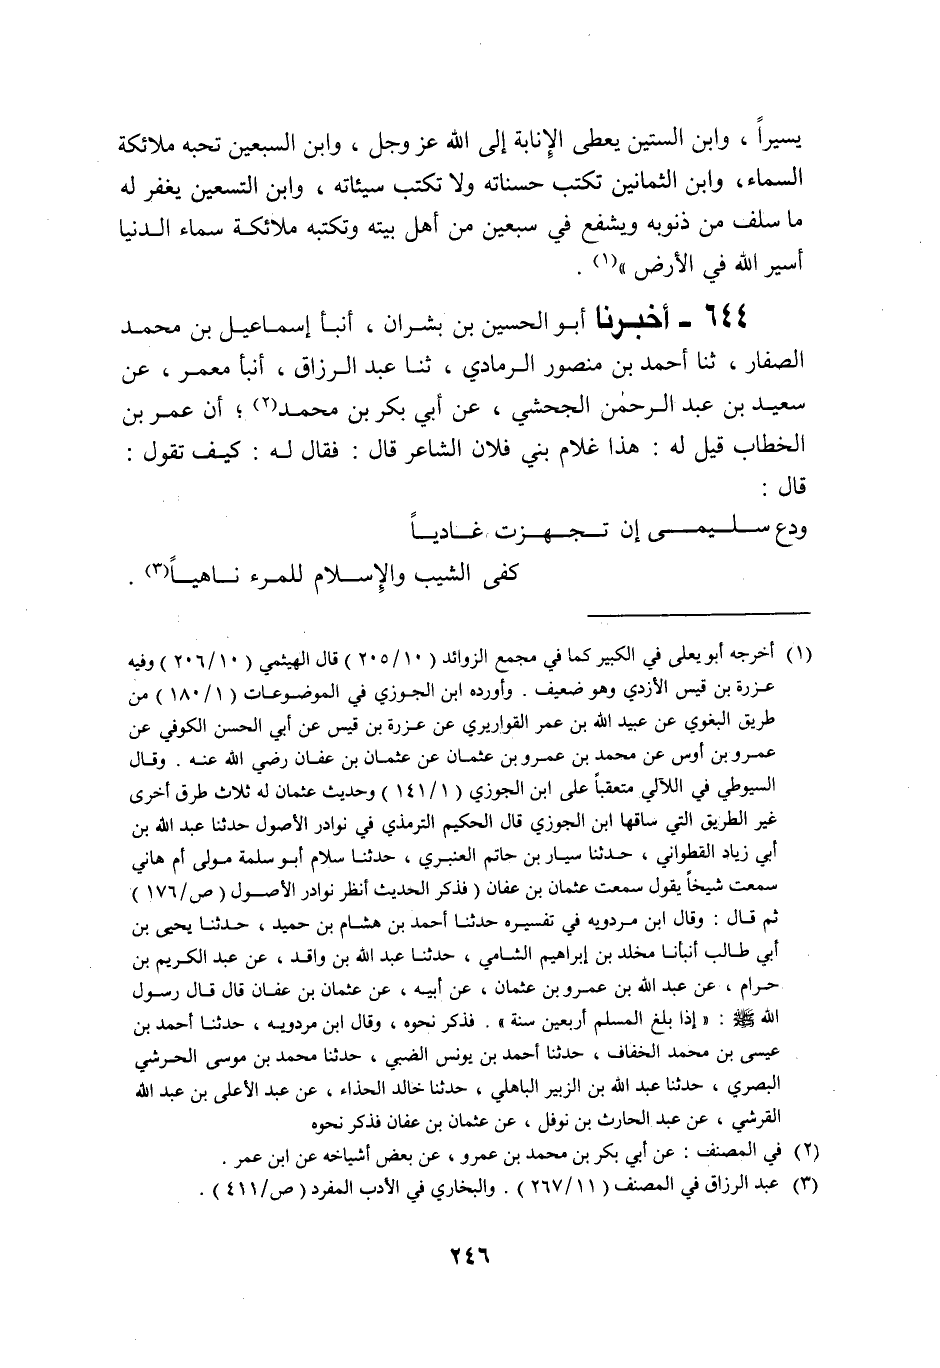 يسيراً ، وابن الستين يعطى الإنابة إلى الله عز وجل ، وابن السبعين تحبه ملائكة
السماء، وابن الثمانين تكتب حسناته ولا تكتب سيئاته ، وابن التسعين يغفر له
ما سلف من ذنوبه ويشفع في سبعين من أهل بيته وتكتبه ملائكة سماء الدنيا
أسير الله في الأرض »(١) .
٦٤٤ - أخبرنا أبو الحسين بن بشران ، أنبأ إسماعيل بن محمد
الصفار ، ثنا أحمد بن منصور الرمادي ، ثنا عبد الرزاق ، أنبأ معمر ، عن
سعيد بن عبد الرحمٰن الجحشي ، عن أبي بكر بن محمد(٢) ؛ أن عمر بن
الخطاب قيل له : هذا غلام بني فلان الشاعر قال : فقال له : كيف تقول :
قال :
ودع سليمى إن تجهزت غادياً
كفى الشيب والإسلام للمرء ناهياً(٣) .
(١) أخرجه أبو يعلى في الكبير كما في مجمع الزوائد ( ٢٠٥/١٠ ) قال الهيثمي ( ٢٠٦/١٠ ) وفيه
عزرة بن قيس الأزدي وهو ضعيف . وأورده ابن الجوزي في الموضوعات ( ١٨٠/١ ) من
طريق البغوي عن عبيد الله بن عمر القواريري عن عزرة بن قيس عن أبي الحسن الكوفي عن
عمرو بن أوس عن محمد بن عمرو بن عثمان عن عثمان بن عفان رضي الله عنه . وقال
السيوطي في اللآلي متعقباً على ابن الجوزي ( ١٤١/١ ) وحديث عثمان له ثلاث طرق أخرى
غير الطريق التي ساقها ابن الجوزي قال الحكيم الترمذي في نوادر الأصول حدثنا عبد الله بن
أبي زياد القطواني ، حدثنا سيار بن حاتم العنبري ، حدثنا سلام أبو سلمة مولى أم هاني
سمعت شيخاً يقول سمعت عثمان بن عفان ( فذكر الحديث أنظر نوادر الأصول ( ص/١٧٦ )
ثم قال : وقال ابن مردويه في تفسيره حدثنا أحمد بن هشام بن حميد ، حدثنا يحيى بن
أبي طالب أنبأنا مخلد بن إبراهيم الشامي ، حدثنا عبد الله بن واقد ، عن عبد الكريم بن
حرام ، عن عبد الله بن عمرو بن عثمان ، عن أبيه ، عن عثمان بن عفان قال قال رسول
الله ﷺ : « إذا بلغ المسلم أربعين سنة » . فذكر نحوه ، وقال ابن مردويه ، حدثنا أحمد بن
عيسى بن محمد الخفاف ، حدثنا أحمد بن يونس الضبي ، حدثنا محمد بن موسى الحرشي
البصري ، حدثنا عبد الله بن الزبير الباهلي ، حدثنا خالد الحذاء ، عن عبد الأعلى بن عبد الله
القرشي ، عن عبد الحارث بن نوفل ، عن عثمان بن عفان فذكر نحوه
(٢) في المصنف : عن أبي بكر بن محمد بن عمرو ، عن بعض أشياخه عن ابن عمر .
(٣) عبد الرزاق في المصنف ( ٢٦٧/١١ ) . والبخاري في الأدب المفرد ( ص/٤١١ ) .
٢٤٦